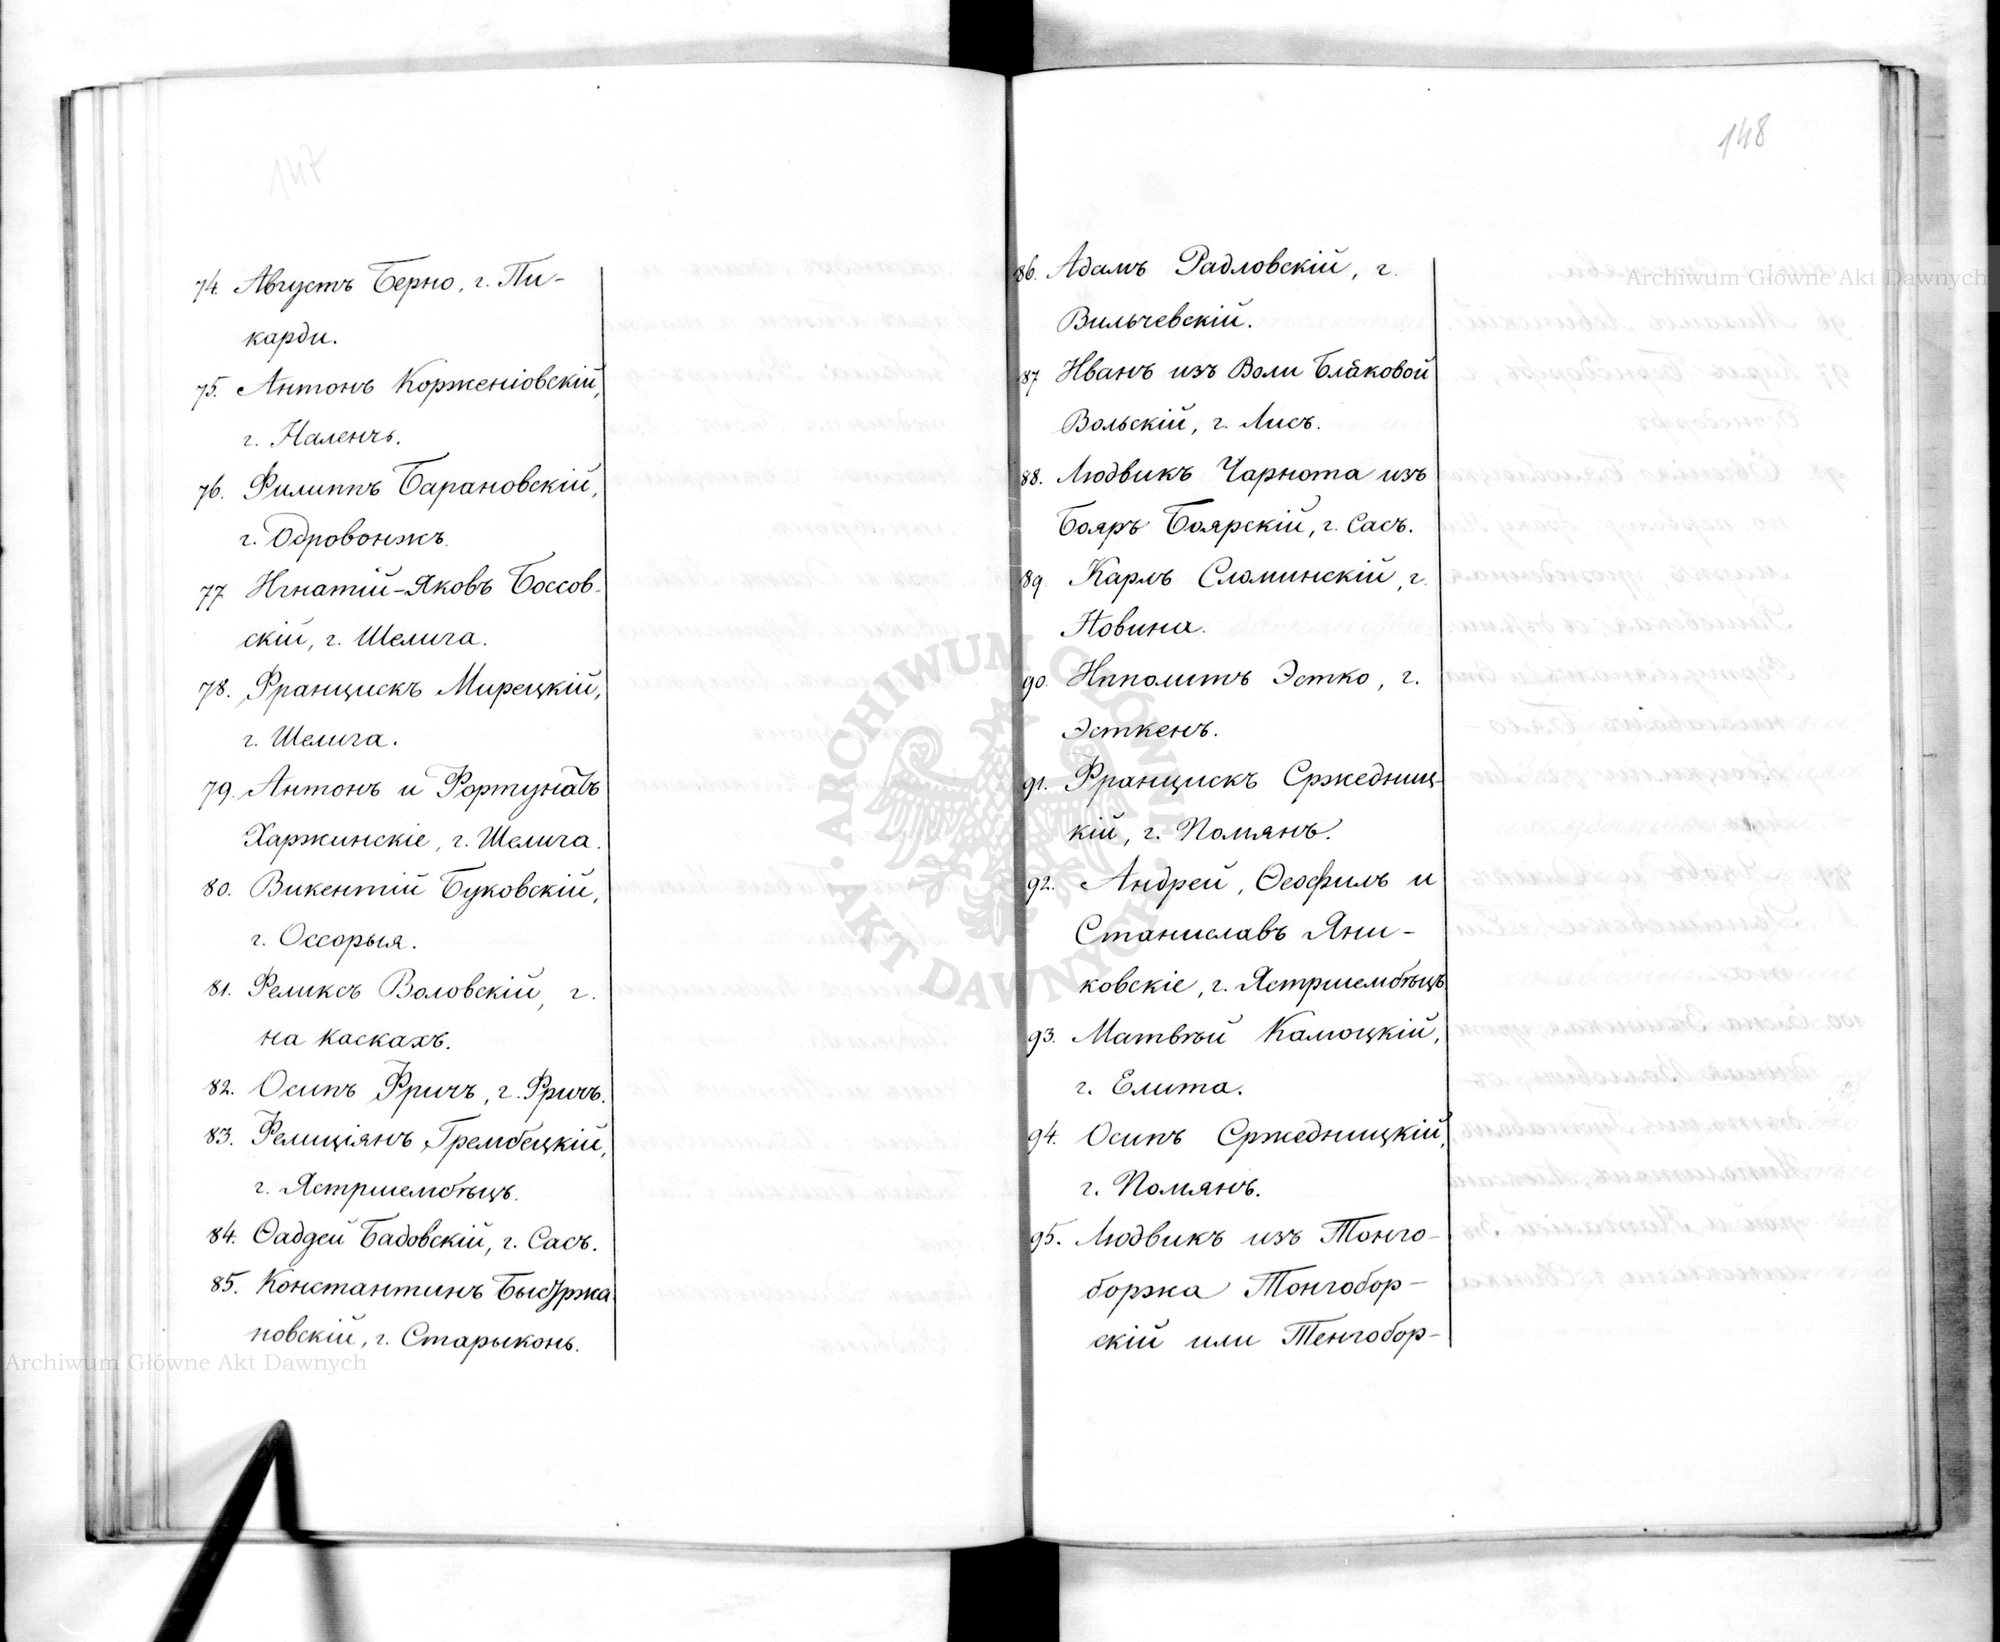 147
74. Августъ Берно, г. Пи-
карди.
75. Антонъ Корженіовскій,
г. Наленчь.
76. Филиппъ Барановскій,
г. Одровонжъ.
77 Игнатій-Яковъ Боссов-
скій, г. Шелига.
78. Францискъ Мирецкій,
г. Шелига.
79. Антонъ и Фортунатъ
Харжинскіе, г. Шелига.
80. Викентій Буковскій,
г. Оссорыя.
81. Феликсъ Воловскій, г.
на каскахъ.
82. Осипъ Фричъ, г. Фричъ.
83. Фелиціянъ Грембецкій,
г. Ястршембѣцъ.
84. Ѳаддей Бадовскій, г. Сасъ.
85. Константинъ Быстржа-
новскій, г. Старыконь.
148
86. Адамъ Радловскій, г.
Вильчевскій.
87 Иванъ изъ Воли Блаковой
Вольскій, г. Лисъ.
88. Людвикъ Чарнота изъ
Бояръ Боярскій, г. Сасъ.
89. Карлъ Сломинскій, г.
Новина.
90. Ипполитъ Эстко, г.
Эсткенъ.
91. Францискъ Сржедниц-
кій, г. Помянъ.
92. Андрей, Ѳеофилъ и
Станиславъ Яни-
ковскіе, г. Ястршембѣцъ
93. Матвѣй Камоцкій,
г. Елита.
94. Осипъ Сржедницкій,
г. Помянъ.
95. Людвикъ изъ Тонго-
боржа Тонгобор-
скій или Тенгобор-
Archiwum Główne Akt Dawnych
Archiwum Główne Akt Dawnych
ARCHIWUM GŁÓWNE AKT DAWNYCH